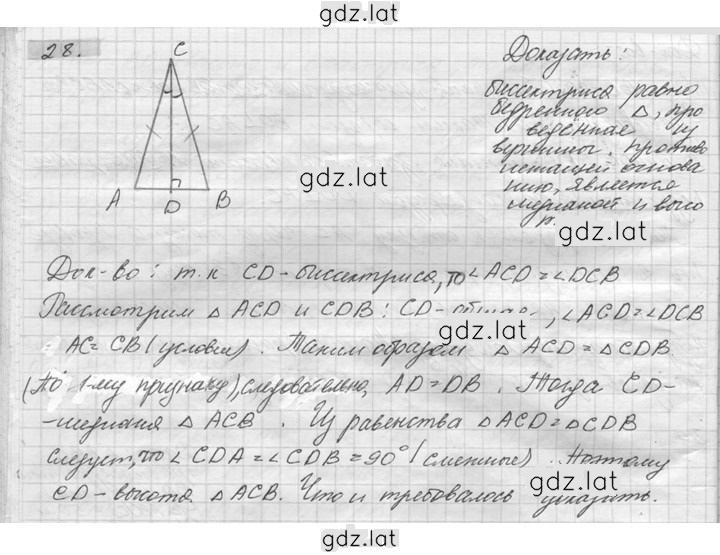 gdz.lat
28.
C
A
D
B
Доказать:
биссектриса равно
бедренного △, про
ведённая из
вершины, противо
лежащей основа
нию, является
медианой и высо
gdz.lat
gdz.lat
Док-во: т.к CD-биссектриса, то ∠ACD=∠DCB
Рассмотрим △ ACD и CDB: CD-общая, ∠ACD=∠DCB
AC=CB (условия). Таким образом △ ACD=△CDB
(по 1-му признаку), следовательно, AD=DB. Тогда CD-
-медиана △ ACB. Из равенства △ACD=△CDB
следует, что ∠CDA=∠CDB=90° (смежные). Поэтому
CD-высота △ACB. Что и требовалось указать.
gdz.lat
gdz.lat
gdz.lat